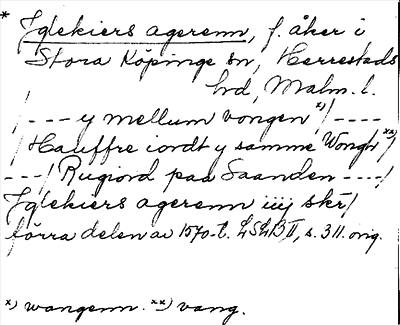 * Iglekiers agerenn, f. åker i
Stora Köpinge sn, Herrestads
hrd, Malm. l.
/---- y mellum vongen x)/----
/Hauffre iordt y samme Wongh xx)/
---/ Rugiord paa Saanden ----/
Iglekiers agerenn iiij skr/
förra delen av 1570-t. LSLB II, s. 311. orig.
x) wangenn. xx) vang.